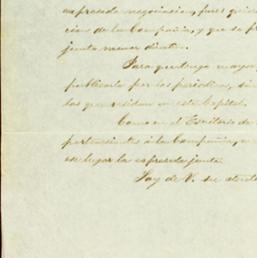 expresada negociacion, pues quie
cios de la Compañia, y que se pr
junta menor dicte.
Para que tenga mayor
publicarla por los periodicos, sin
los que residen en esta Capital.
Como en el Escritorio de
pertenecientes á la Compañia, u
ese lugar la espresada junta.
Soy de V. su atento